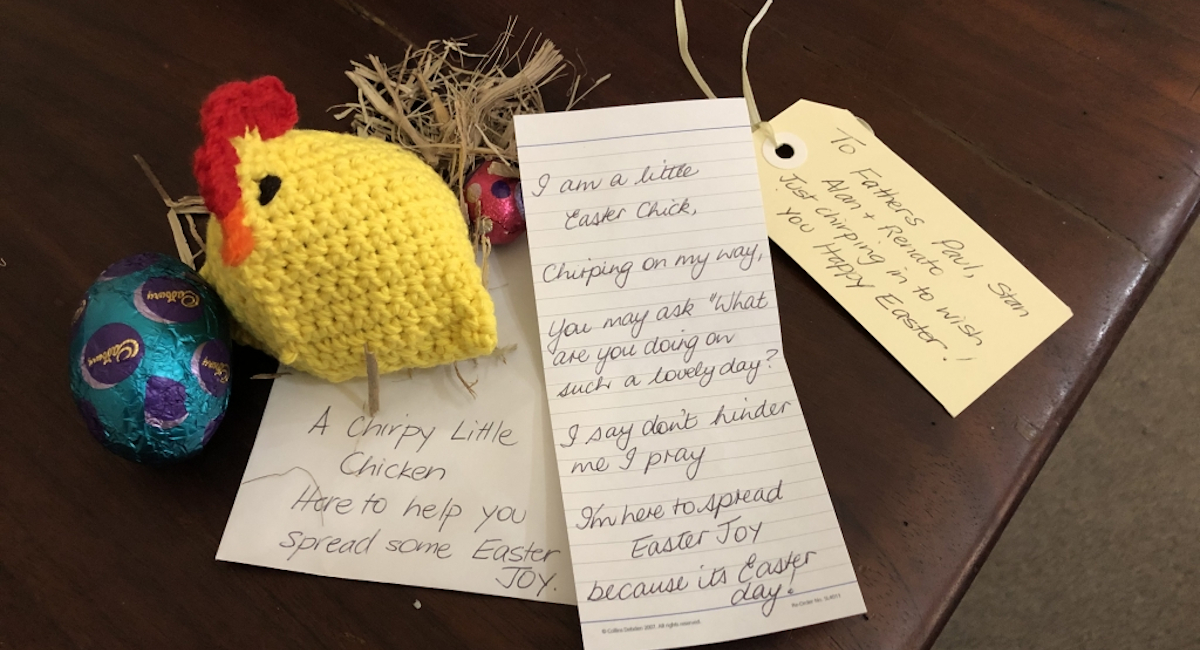 Cadbury
Cadbury
Cadbury
A Chirpy Little
Chicken
Here to help you
spread some Easter
Joy.
I am a little
Easter Chick,
Chirping on my way,
You may ask "What
are you doing on
such a lovely day?
I say don't hinder
me I pray
I'm here to spread
Easter Joy
because its Easter
day!
© Collins Debden 2001. All rights reserved.
To Fathers Paul, Stan
Alan + Renato
Just chirping in to wish
you Happy Easter!